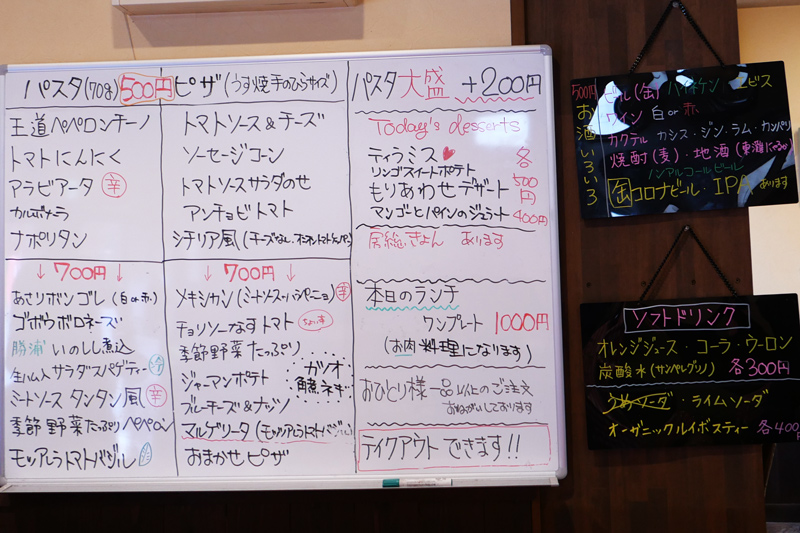 パスタ(70g) 500円
王道ペペロンチーノ
トマトにんにく
アラビアータ 辛
カルボナーラ
ナポリタン
↓ 700円 ↓
あさりボンゴレ (白or赤)
ゴボウボロネーズ
勝浦 いのしし煮込
生ハム入サラダスパゲティー 冷
ミートソースタンタン風 辛
季節野菜たっぷりペペロン
モッツアレラトマトバジル
ピザ (うす焼手のひらサイズ)
トマトソース&チーズ
ソーセージコーン
トマトソースサラダのせ
アンチョビトマト
シチリア風
↓ 700円 ↓
メキシカン (ミートソース・ハラペーニョ) 辛
チョリソーなすトマト
季節野菜たっぷり
ジャーマンポテト
カツオ
ブルーチーズ&ナッツ
マルゲリータ (モッツアレラトマトバジル)
おまかせピザ
パスタ大盛 +200円
Today's desserts
ティラミス 各
リンゴスイートポテト 500
もりあわせデザート 円
マンゴとパインのジェラート 400円
房総きょん あります
本日のランチ
ワンプレート 1000円
(お肉料理になります)
おひとり様一品以上のご注文
おねがいしております
テイクアウトできます!!
500円
お酒いろいろ
ビール(缶) ハイネケン ヱビス
ワイン 白or赤
カクテル カシス・ジン・ラム・カンパリ
焼酎(麦)・地酒
ノンアルコールビール
缶 コロナビール・IPA あります
ソフトドリンク
オレンジジュース・コーラ・ウーロン
炭酸水 (サンペレグリノ) 各300円
うめソーダ・ライムソーダ
オーガニックルイボスティー 各400円